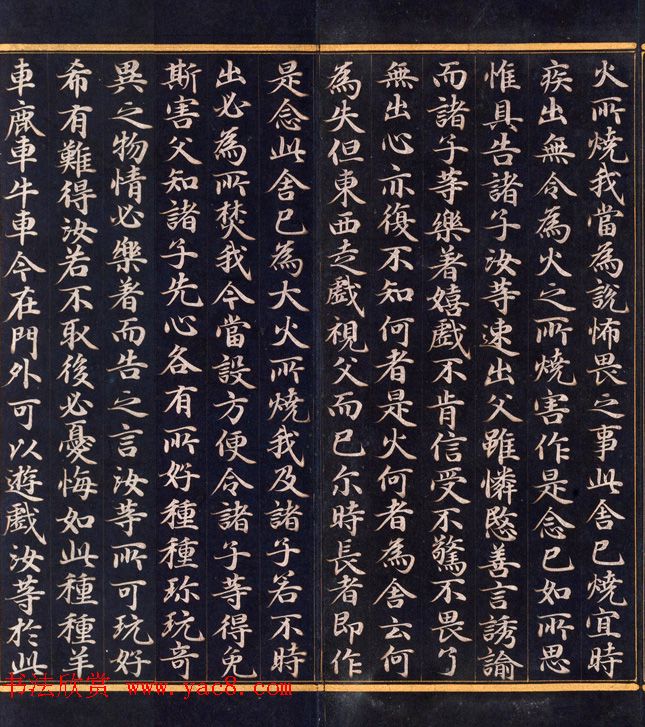 火所燒我當為說怖畏之事此舍已燒宜時
疾出無令為火之所燒害作是念已如所思
惟具告諸子汝等速出父雖憐愍善言誘諭
而諸子等樂著嬉戲不肯信受不驚不畏了
無出心亦復不知何者是火何者為舍云何
為失但東西走戲視父而已尒時長者即作
是念此舍已為大火所燒我及諸子若不時
出必為所焚我今當設方便令諸子等得免
斯害父知諸子先心各有所好種種珎玩奇
異之物情必樂著而告之言汝等所可玩好
希有難得汝若不取後必憂悔如此種種羊
車鹿車牛車今在門外可以遊戲汝等於此
书法欣赏 www.yac8.com